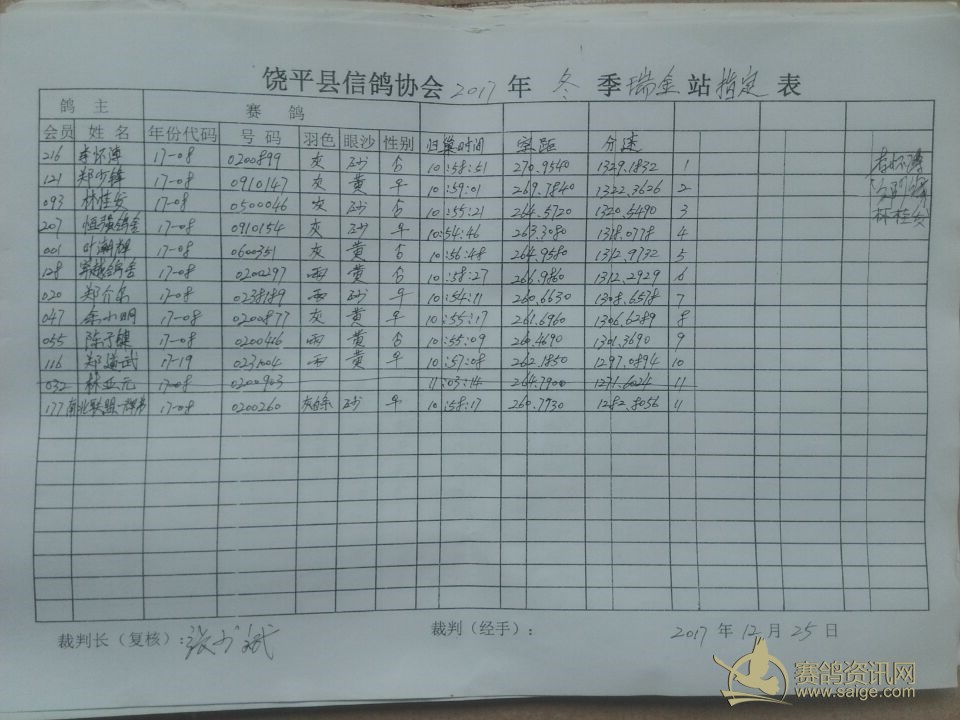 饶平县信鸽协会2017年冬季瑞金站指定表
鸽主 赛鸽
会员 姓名 年份代码 号码 羽色 眼沙 性别 归巢时间 空距 分速
216 李怀涛 17-08 0200899 灰 砂 10:58:51 270.9540 1329.1832 1
121 郑少锋 17-08 0910147 灰 黄 10:59:01 269.7840 1322.3626 2
093 林桂安 17-08 0500046 灰 砂 10:55:21 264.5720 1320.5490 3
207 恒强鸽舍 17-08 0910154 灰 砂 10:54:46 263.3080 1318.0778 4
001 叶潮辉 17-08 0600351 灰 黄 10:56:48 264.9580 1312.9732 5
128 鸽舍 17-08 0200297 雨 黄 10:58:27 266.9860 1312.2929 6
020 郑介 17-08 0238189 雨 砂 10:54:11 260.6630 1308.6578 7
047 余小明 17-08 0200877 灰 黄 10:55:17 261.6960 1306.6289 8
055 陈子 17-08 0200416 雨 黄 10:55:09 260.4690 1301.3690 9
116 郑道武 17-19 0231004 雨 黄 10:57:08 262.1850 1297.0894 10
032 林亚元 17-08 0200903 11:03:14 264.7900 1271.6024 11
177 南北联盟 17-08 0200260 砂 10:58:17 260.7930 1282.8056 11
林桂安
裁判长（复核）： 裁判（经手）： 2017年12月25日
赛鸽资讯网
www.saige.com